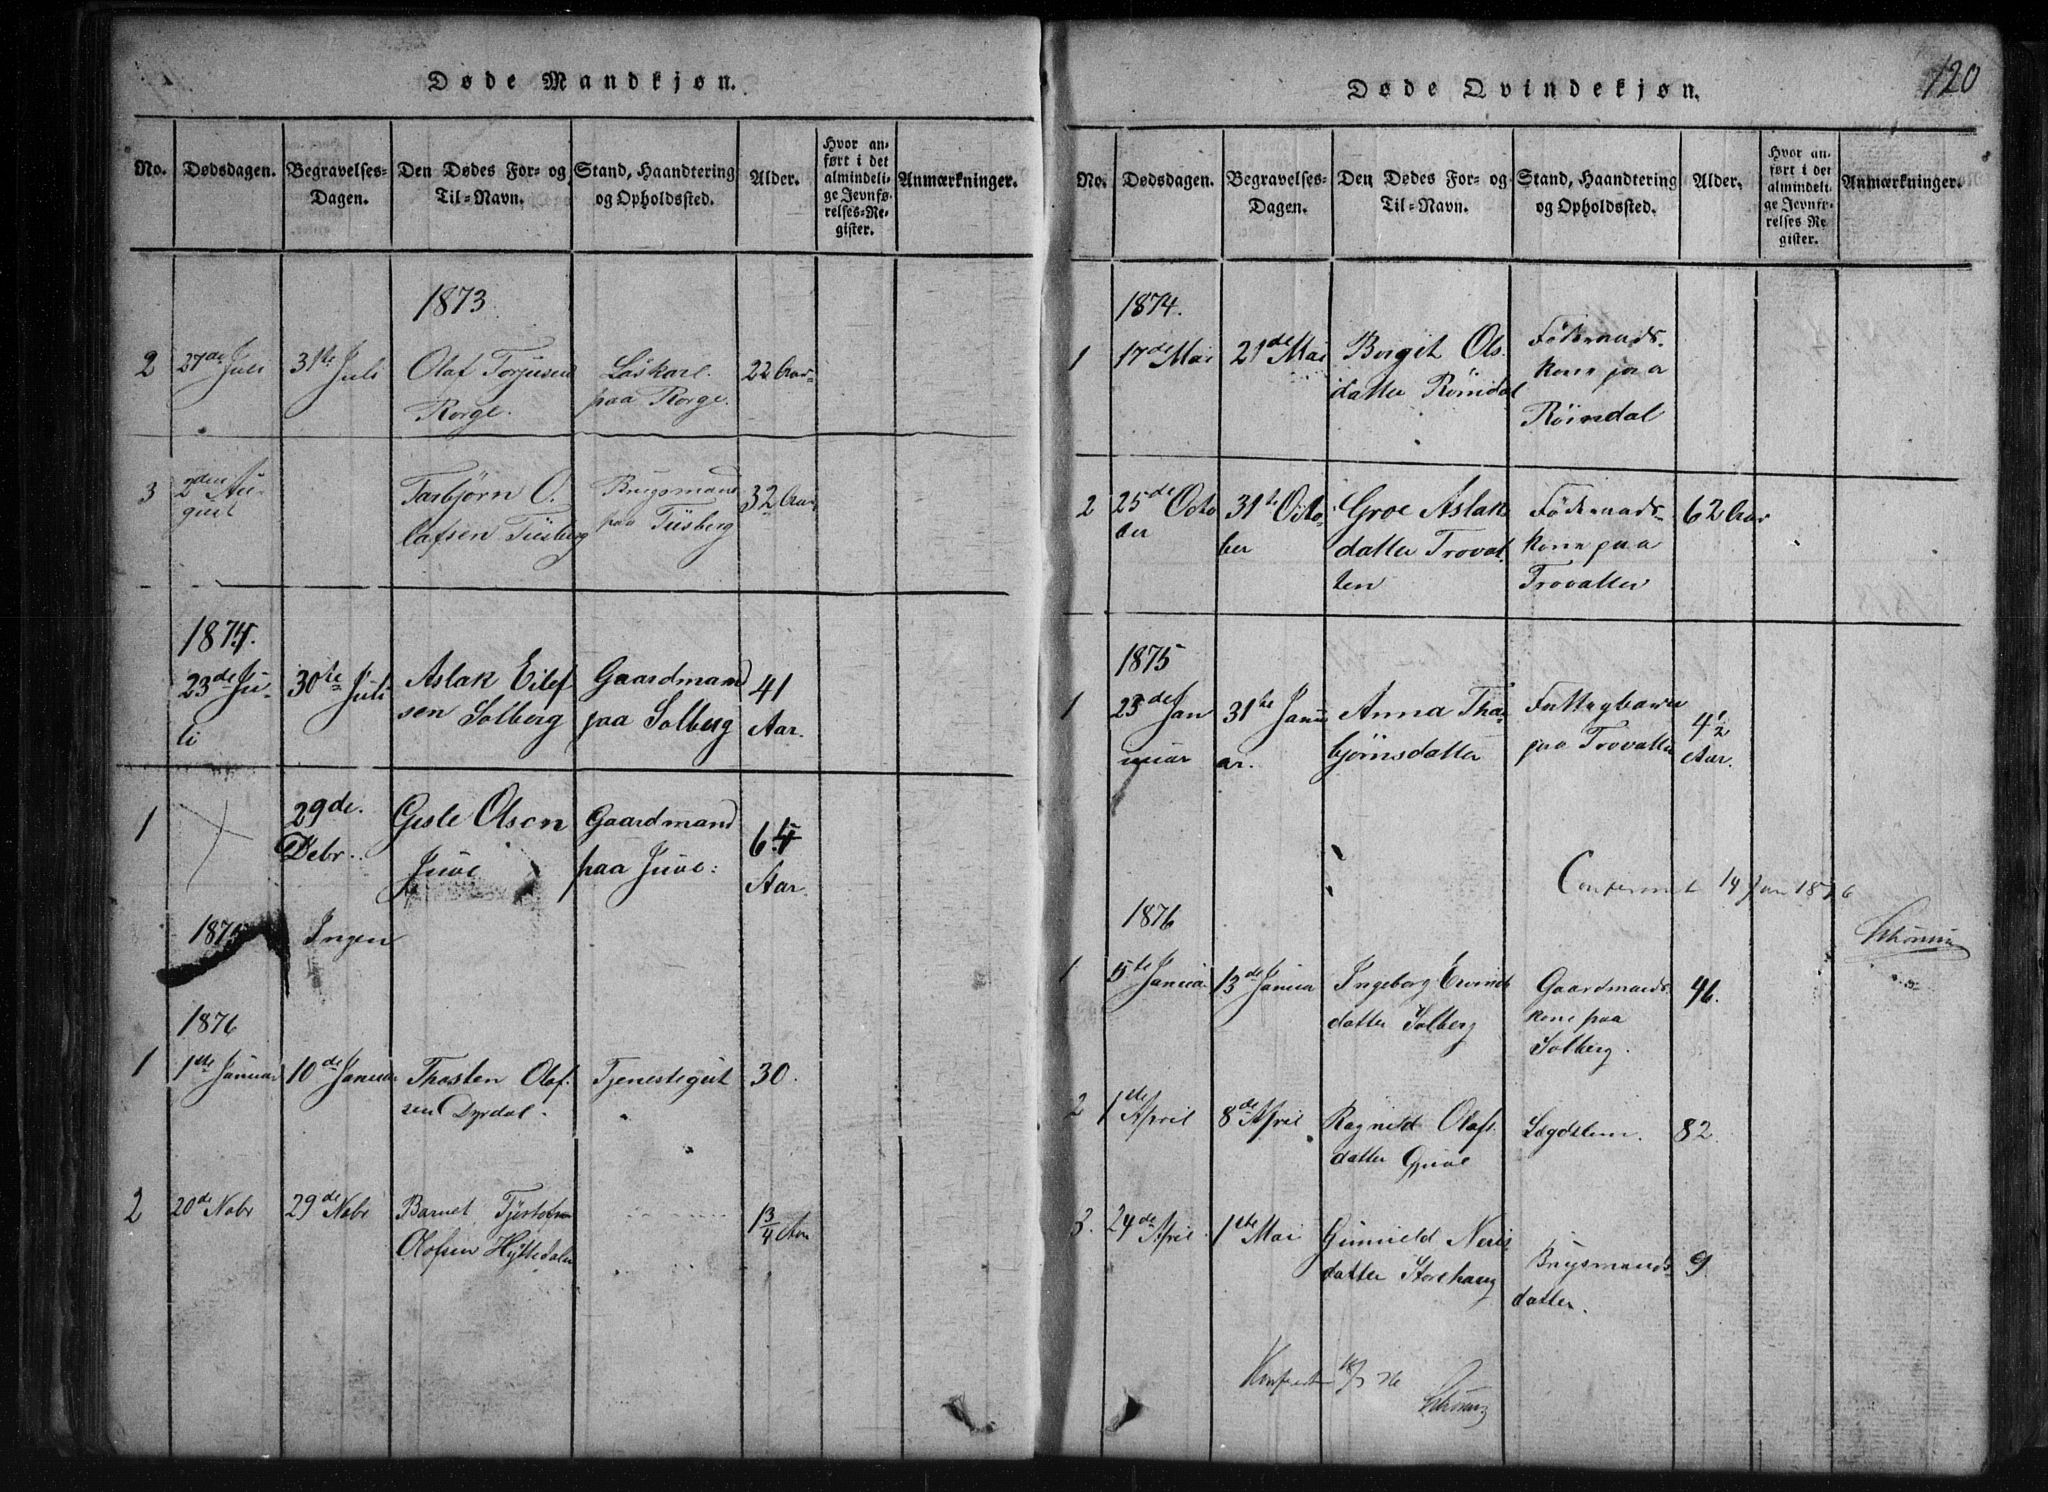 Døde Mandkjøn.
No.
Dødsdagen.
Begravelses-
Dagen.
Den Dødes For- og
Til-Navn.
Stand, Haandtering
og Opholdssted.
Alder.
Hvor an-
ført i det
almindeli-
ge Jevnfø-
relses-Re-
gister.
Anmærkninger.
1873.
2
27de Juli
31te Juli
Olaf Torjusen
Rorge.
Løskarl
paa Rorge.
22 Aar
3
2den Au-
gust
Tarbjørn O.
lafsen Tiisberg
Brugsmand
paa Tiisberg
32 Aar
1874.
23de Ju-
li
30te Juli
Aslak Eilef
sen Solberg
Gaardmand
paa Solberg
41
Aar.
1
29de.
Debr.
Gisle Olsen
Juve
Gaardmand
paa Juve.
Aar.
1875
Ingen
1876
1
1ste Januar
10de Januar
Thosten Olaf-
sen Dyrdal.
Tjenestegut
30.
2
20de Nobr
29de Nobr
Barnet
Olafsen Hyttedalen
1 3/4 Aar
Døde Qvindekjøn.
120
No.
Dødsdagen.
Begravelses-
Dagen.
Den Dødes For- og
Til-Navn.
Stand, Haandtering
og Opholdssted.
Alder.
Hvor an-
ført i det
almindeli-
ge Jevnfø-
relses Re-
gister.
Anmærkninger.
1874.
1
17de Mai
21de Mai
Bergit Ols-
datter Röindal
Föderaads-
kone paa
Röindal
2
25de Octo
ber
31te Octo-
ber
Groe Aslak
datter Trovat-
ten
Föderaads-
kone paa
Trovatten
62 Aar
1875
1
23de Jan
nuar
31te Janu
ar.
Anna Tha-
bjørnsdatter
Fattigbarn
paa Trovatten
4 1/2
Aar.
14 Jan 1876
1876
1
5te Januar
13de Janua
Ingeborg Eivinds
datter Solberg
Gaardmands-
kone paa
Solberg.
46.
2
1ste April
8de April
Ragnild Olafs
datter Gjuve
Lægdslem.
82
3.
24de April
1ste Mai
Gunnild Neris
datter Storehaug
Brugsmands-
datter.
9